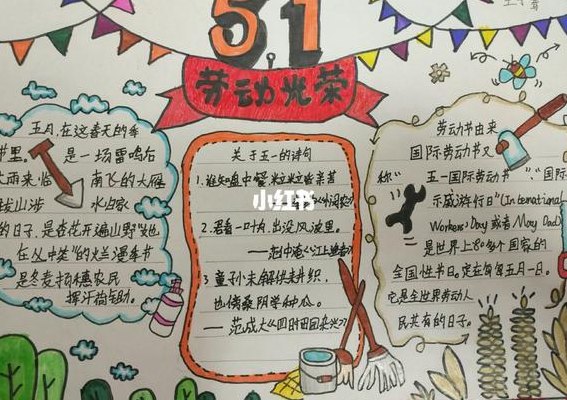 5.1
劳动光荣
五月,在这春天的季
节里,是一场雷鸣后
大雨来临 南飞的大雁
拔山涉 水归家
的日子,是杏花开遍山野
在丛中笑"的烂漫季节
是冬麦扬穗农民
挥汗
关于五一的诗句
1. 谁知盘中餐 粒粒皆辛苦
2. 君看一叶舟,出没风波里。
——范仲淹《江上渔者》
3 童孙未解供耕织,
也傍桑阴学种瓜。
—— 范成大《四时田园杂兴》
劳动节由来
国际劳动节又
称"五一国际劳动节""国
示威游行日"(International
Workers' Day 或者 May Day)
是世界上80多个国家的
全国性节日。定在每年五月一日。
它是全世界劳动人
民共有的日子。
小红书